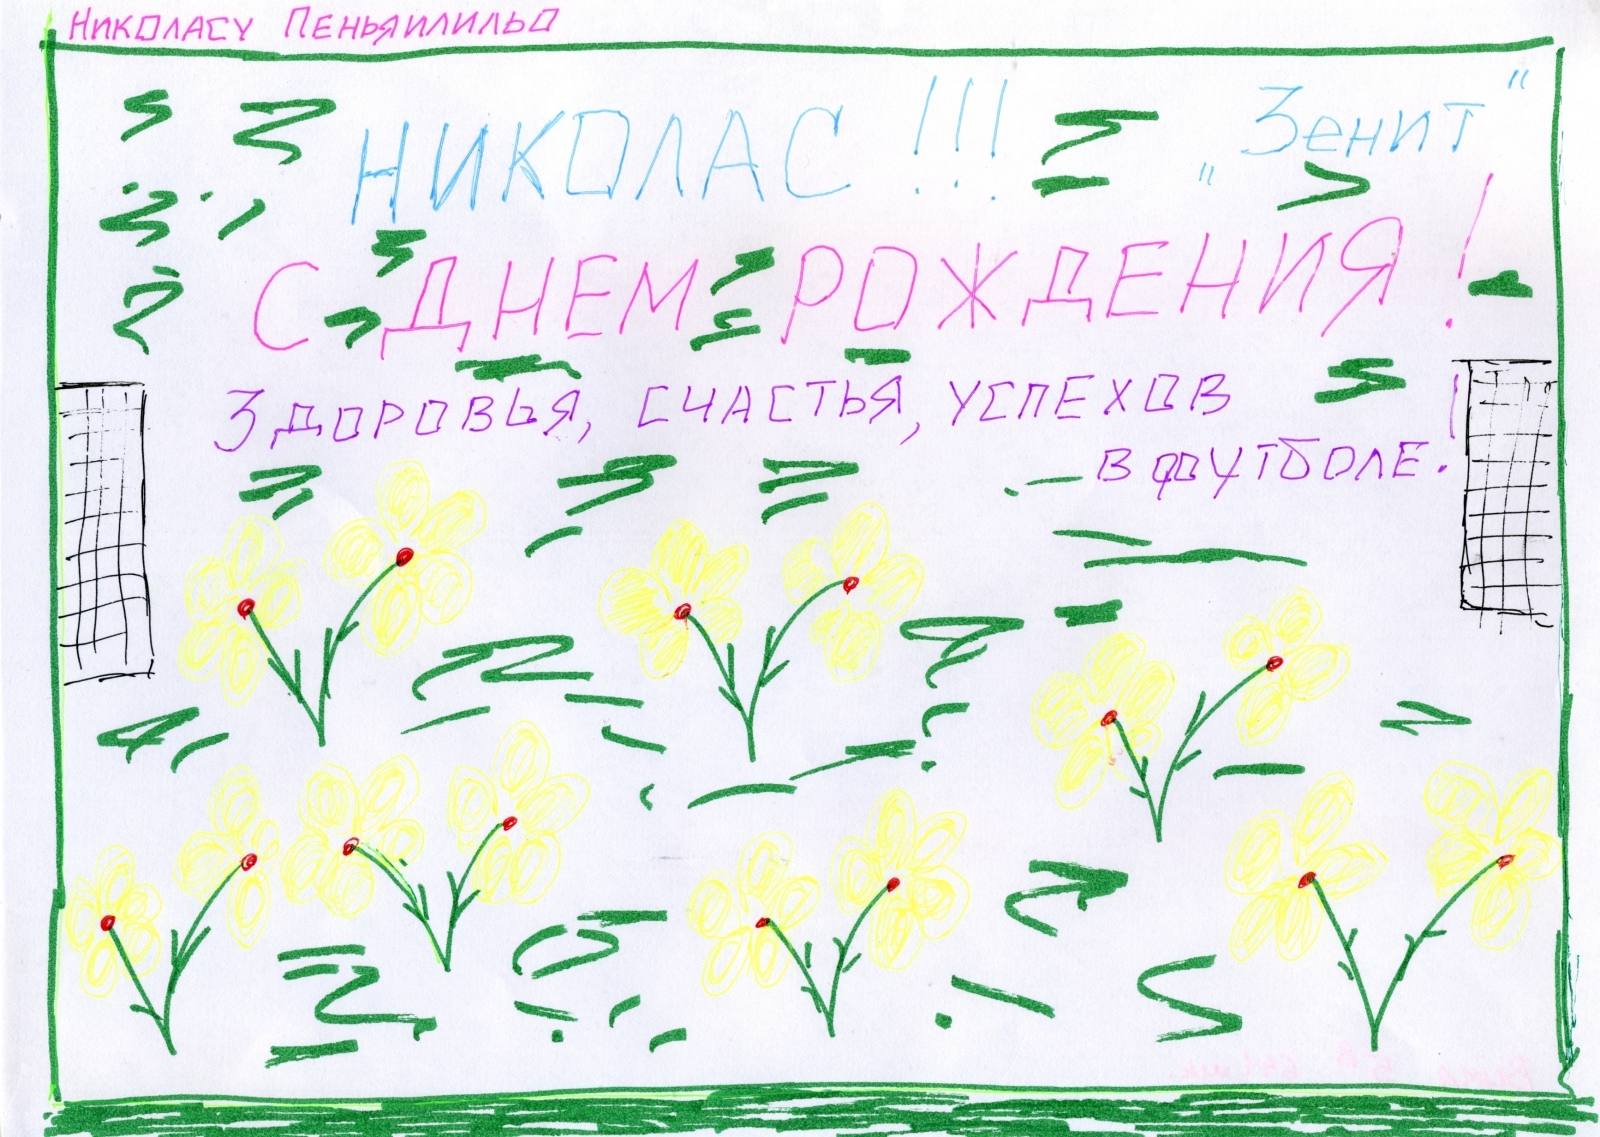 Николасу Пеньяилильо
НИКОЛАС !!!
„Зенит“
С ДНЕМ РОЖДЕНИЯ!
Здоровья, счастья, успехов
в футболе!